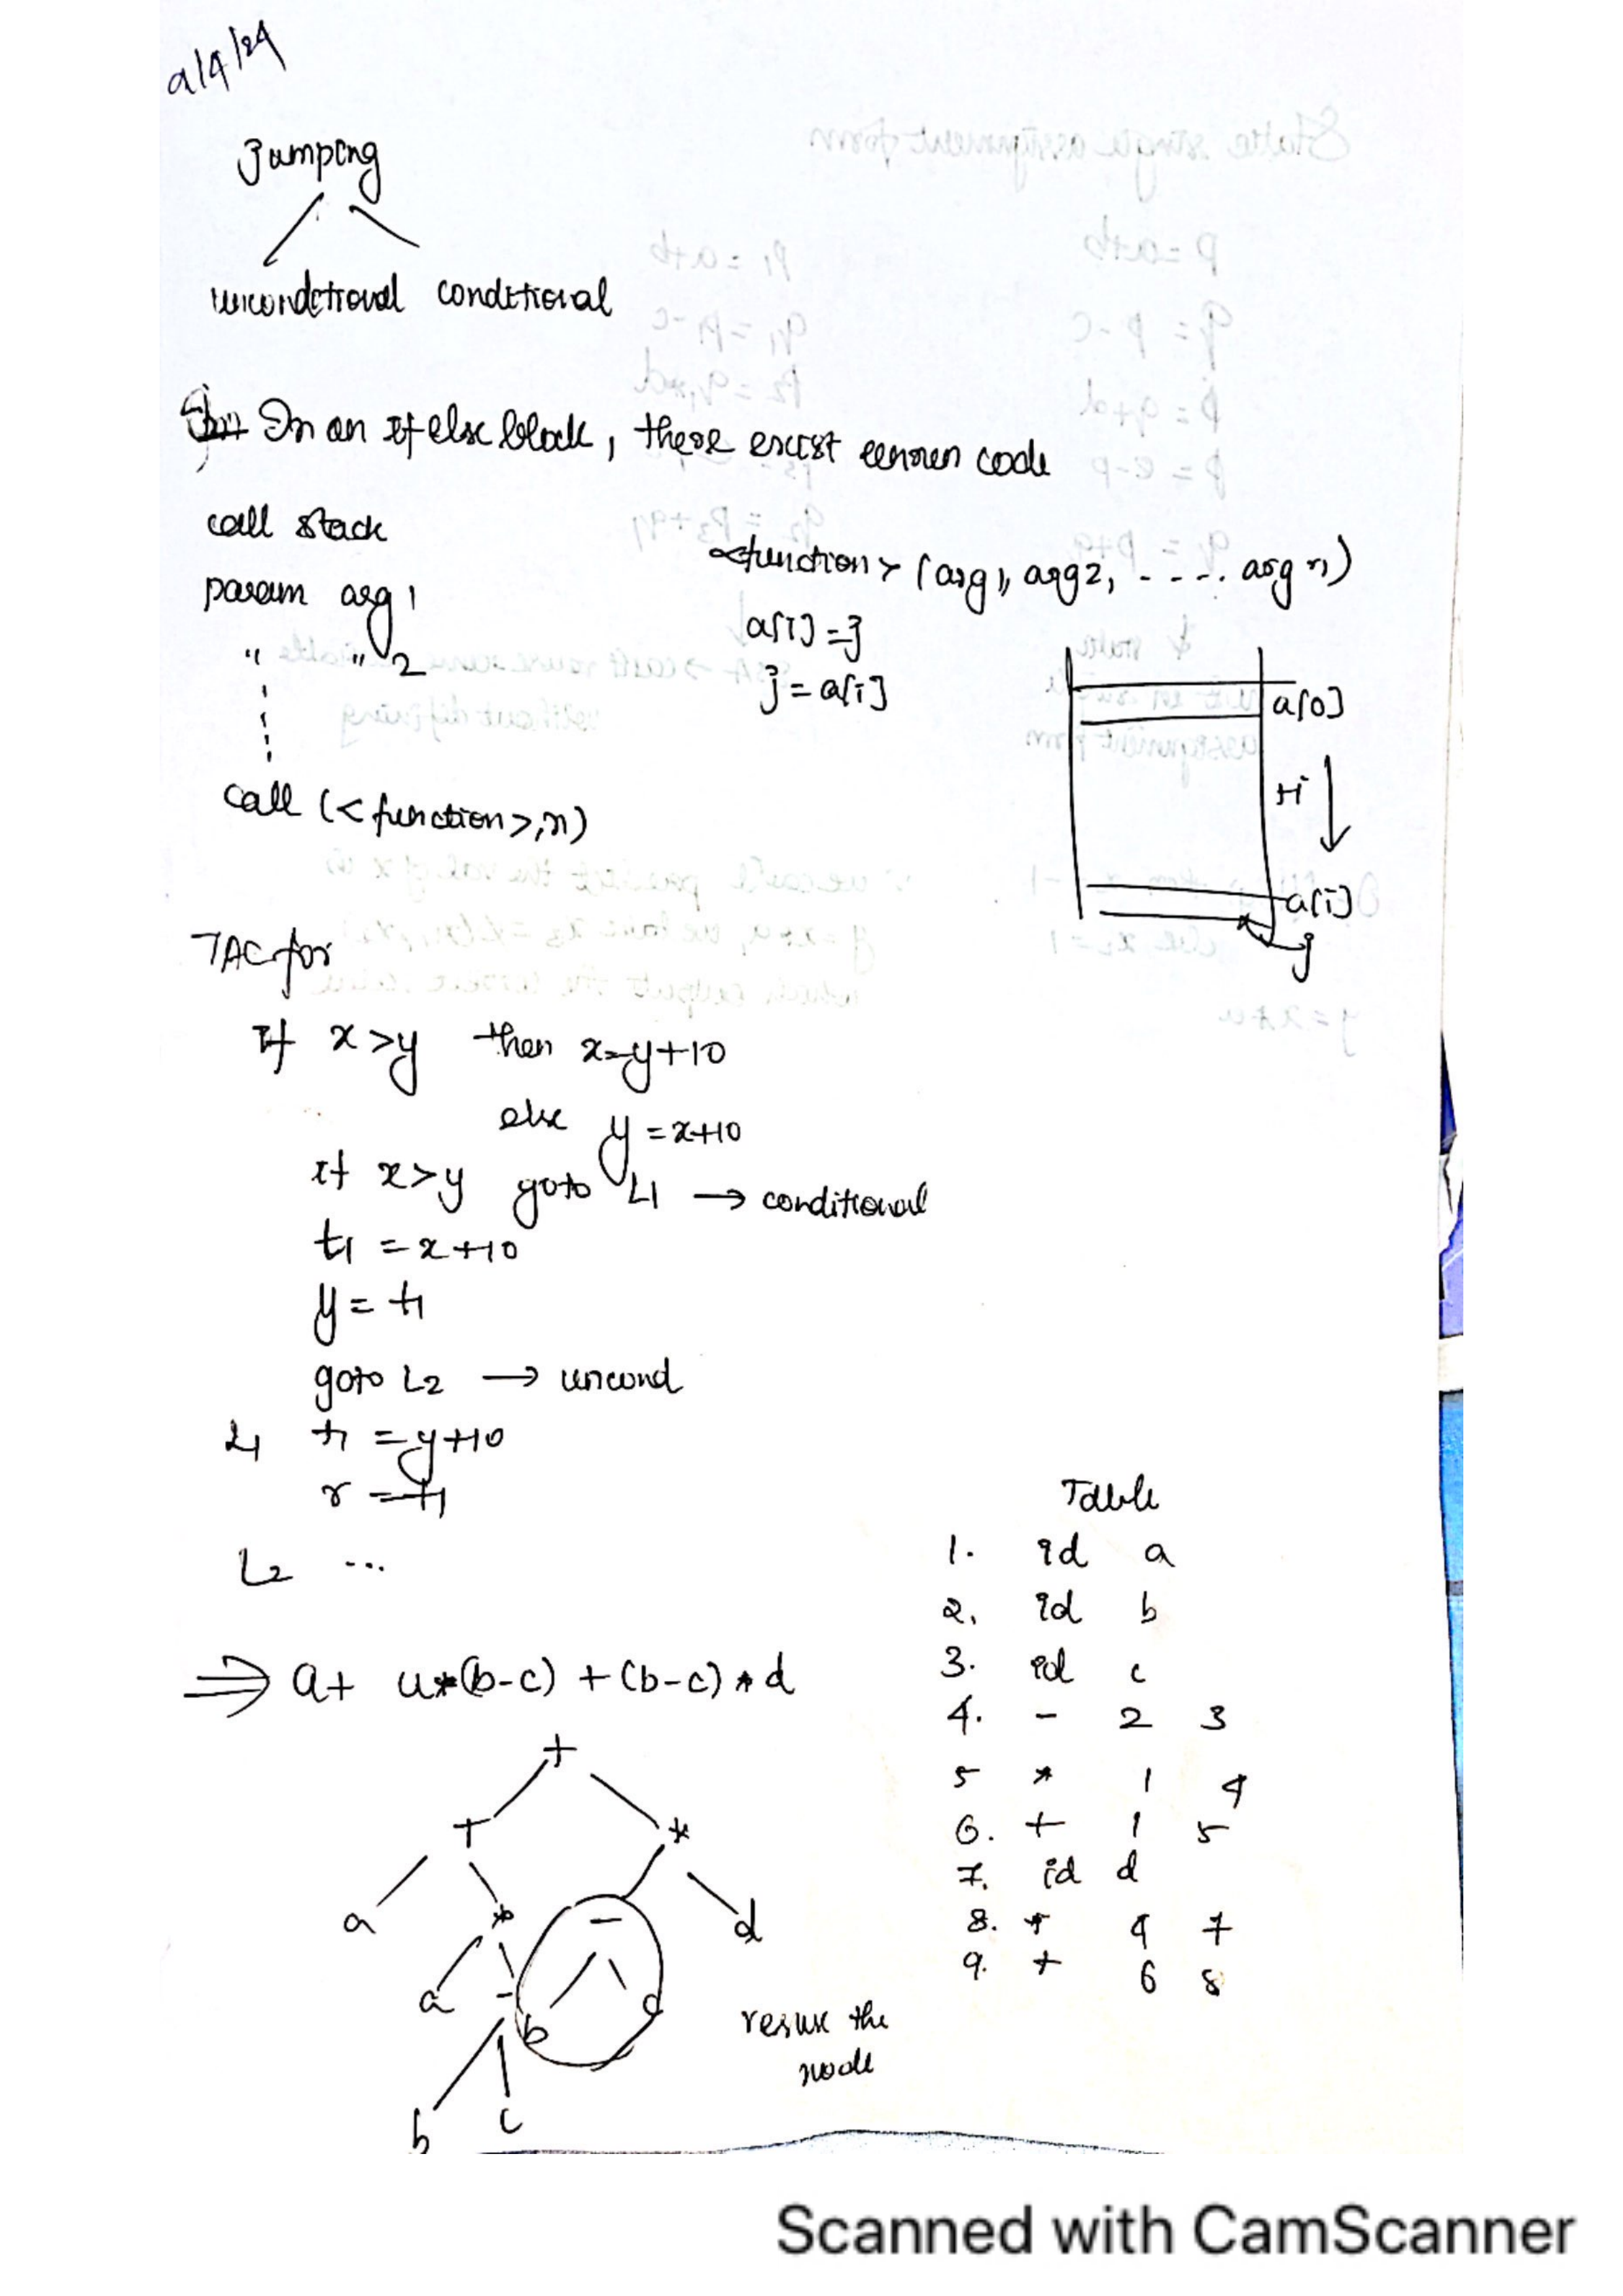 Jumping
unconditional conditional
In an If else block, there exist common code
call stack
param arg 1
" " 2
call (<function>, n)
<function> (arg 1, arg 2, ..... arg n)
a[i] = j
j = a[i]
a[0]
+i
a[i]
j
TAC for
If x>y then x=y+10
else y = x+10
if x>y goto L1 → conditional
t1 = x+10
y = t1
goto L2 → uncond
L1 t1 = y+10
x = t1
L2 ...
⇒ a+ a*(b-c) + (b-c) * d
+
+ *
a * - d
a - b c
b c
reuse the
node
Table
1. id a
2. id b
3. id c
4. - 2 3
5 * 1 4
6. + 1 5
7. id d
8. * 4 7
9. + 6 8
Scanned with CamScanner